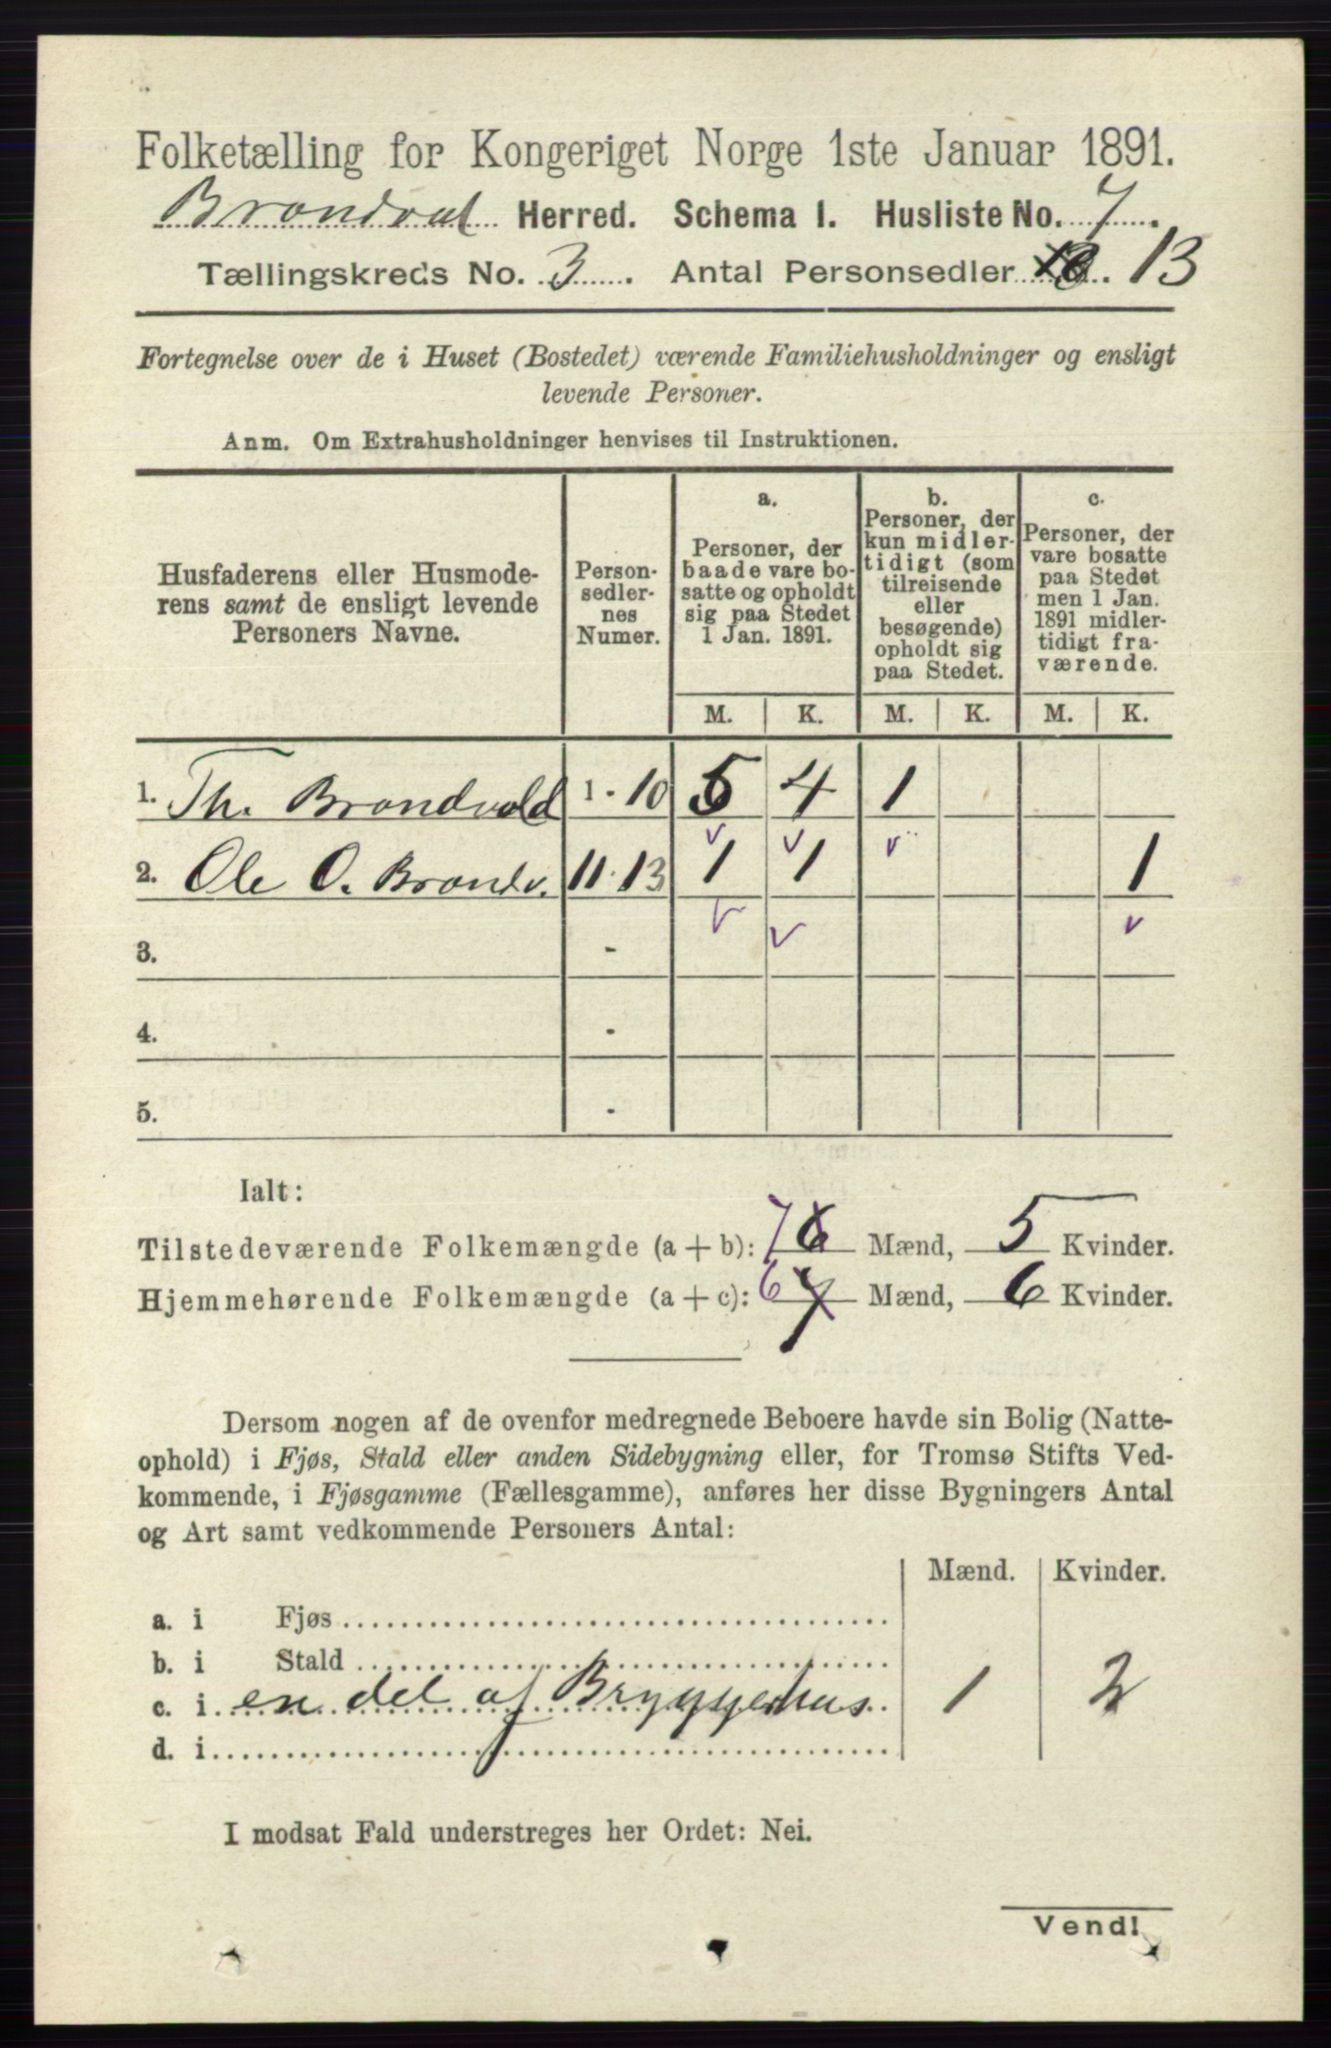 Folketælling for Kongeriget Norge 1ste Januar 1891.
Brandval Herred. Schema I. Husliste No. 7.
Tællingskreds No. 3. Antal Personsedler 13
Fortegnelse over de i Huset (Bostedet) værende Familiehusholdninger og ensligt
levende Personer.
Anm. Om Extrahusholdninger henvises til Instruktionen.
Husfaderens eller Husmode-
rens samt de ensligt levende
Personers Navne.
Person-
sedler-
nes
Numer.
a.
Personer, der
baade vare bo-
satte og opholdt
sig paa Stedet
1 Jan. 1891.
b.
Personer, der
kun midler-
tidigt (som
tilreisende
eller
besøgende)
opholdt sig
paa Stedet.
c.
Personer, der
vare bosatte
paa Stedet
men 1 Jan.
1891 midler-
tidigt fra-
værende.
M. K. M. K. M. K.
1. Th. Brandvold 1 - 10 5 4 1
2. Ole O. Brandv. 11 - 13 1 1 1
3. -
4. -
5. -
Ialt:
Tilstedeværende Folkemængde (a + b): 7 6 Mænd, 5 Kvinder.
Hjemmehørende Folkemængde (a + c): 6 7 Mænd, 6 Kvinder.
Dersom nogen af de ovenfor medregnede Beboere havde sin Bolig (Natte-
ophold) i Fjøs, Stald eller anden Sidebygning eller, for Tromsø Stifts Ved-
kommende, i Fjøsgamme (Fællesgamme), anføres her disse Bygningers Antal
og Art samt vedkommende Personers Antal:
Mænd. Kvinder.
a. i Fjøs
b. i Stald
c. i en del af Bryggerhus 1 2
d. i
I modsat Fald understreges her Ordet: Nei.
Vend!